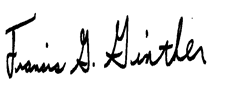 Francis G. Ginther